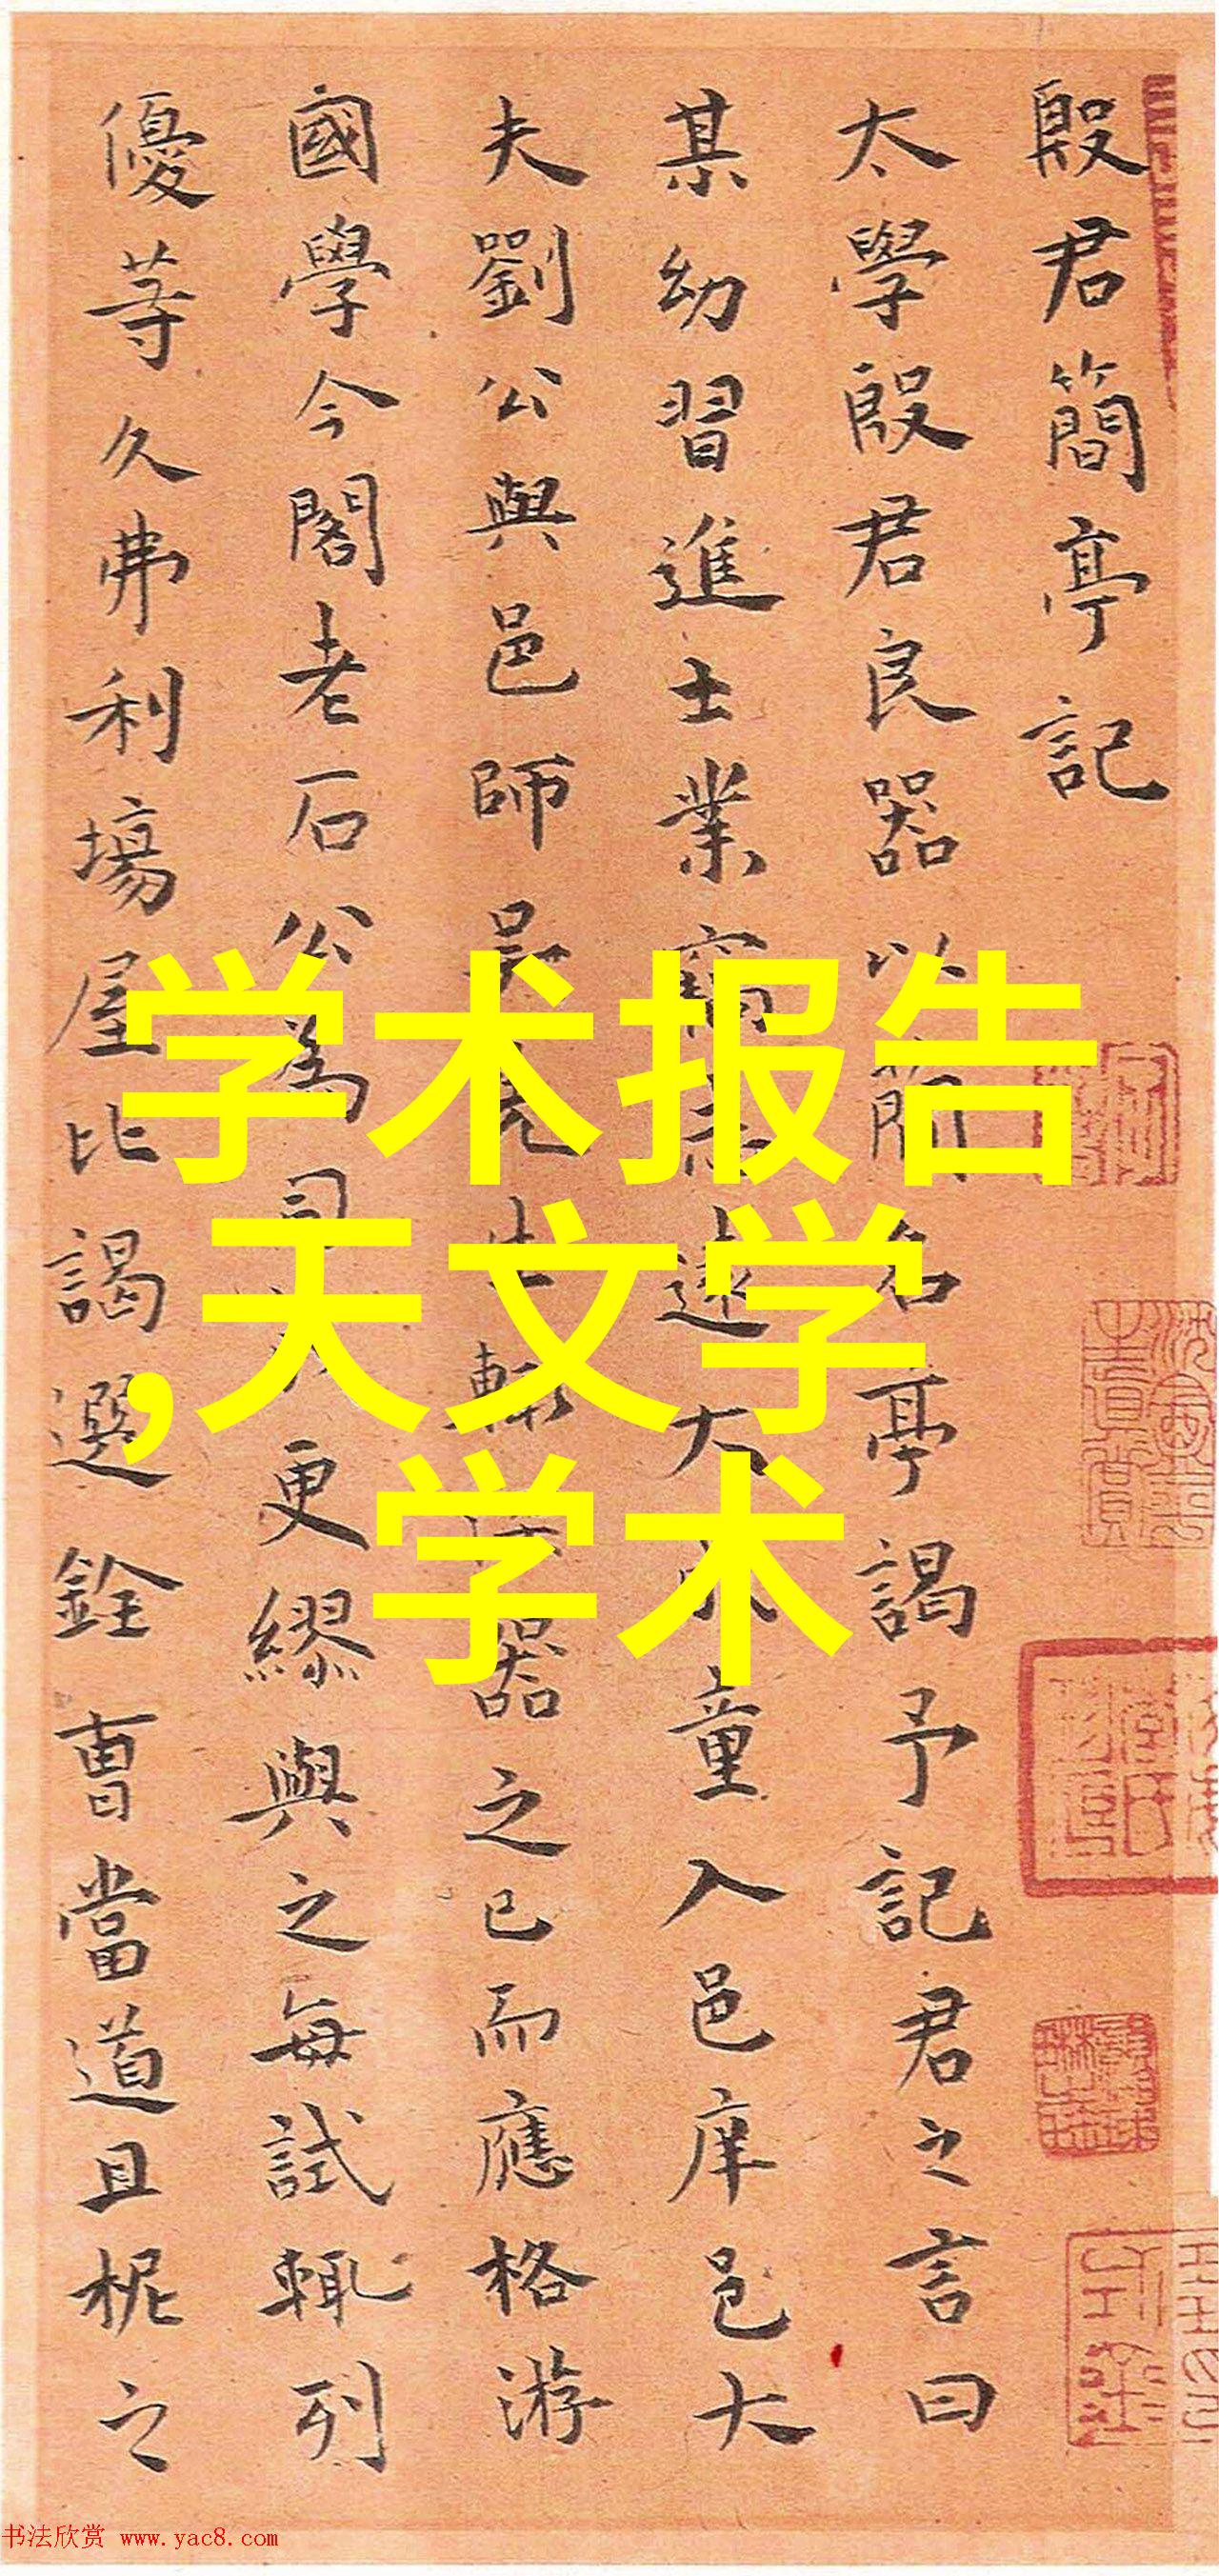 殷君簡亭記
太學殷君良器以簡名亭謁予記君之言曰
某幼習進士業竊遠大童入邑庠邑大
夫劉公與邑師吳先生輒器之已而應格游
國學今閣老石公為司更繆與之每試輒列
優等久弗利場屋比謁選銓曹當道且柅之
学术报告
,天文学
学术
书法欣赏 www.yac8.com